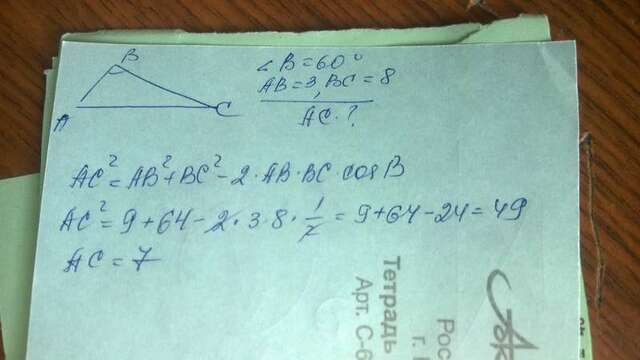 B
A
C
∠B=60°
AB=3, BC=8
AC-?
AC²=AB²+BC²-2·AB·BC·cosB
AC²=9+64-2·3·8·1/2=9+64-24=49
AC=7
Тетрадь
Арт. С-6
Рос
г.